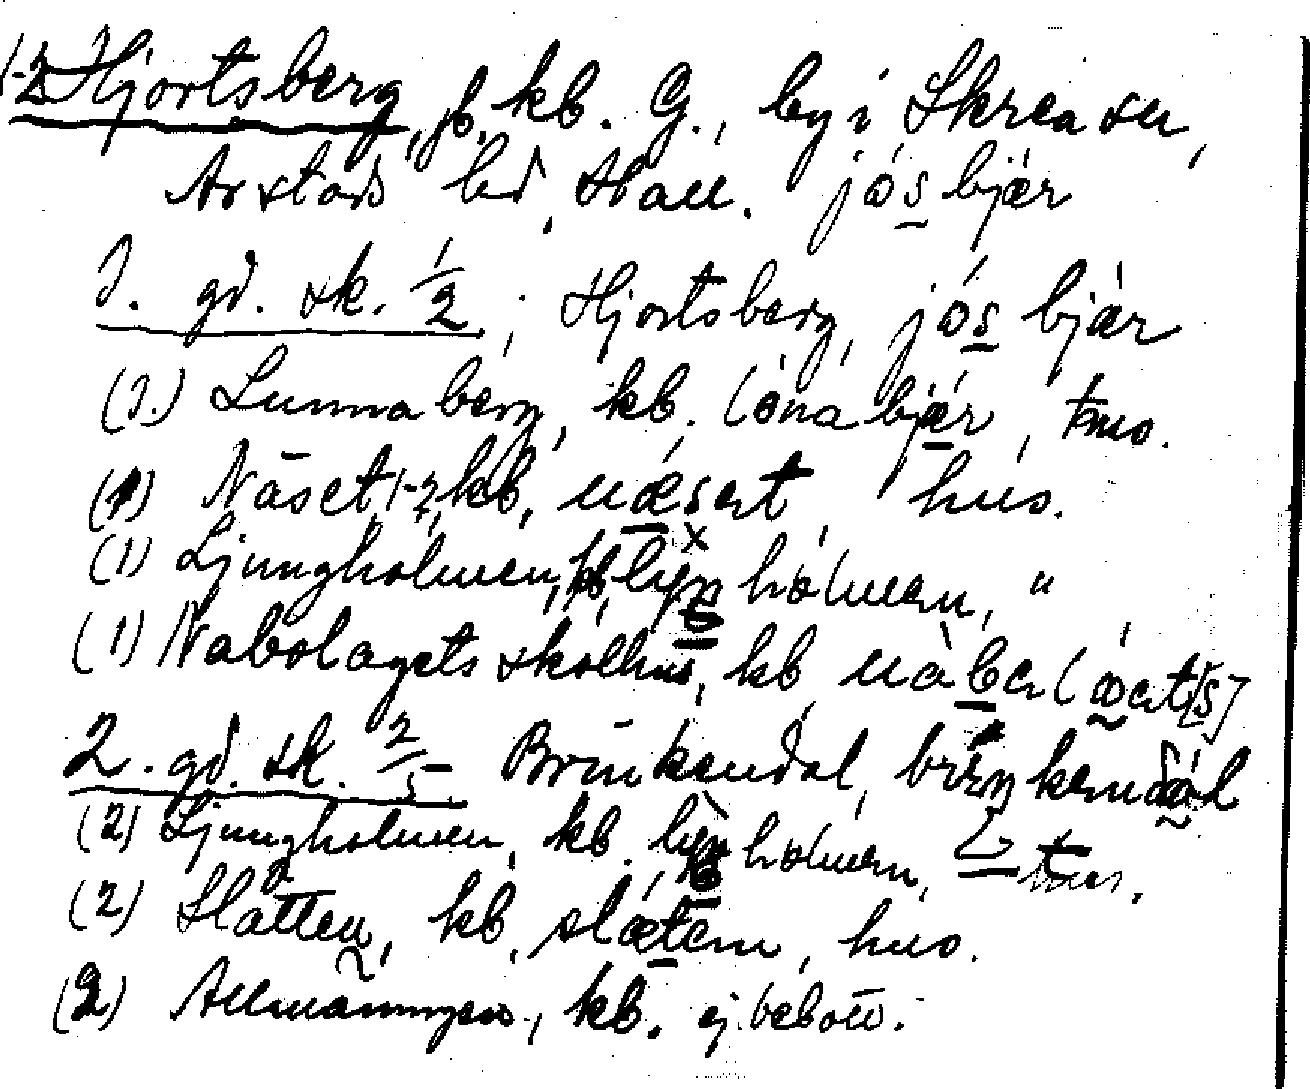 (1-2 Hjortsberg, jb, kb. G., by i Skrea sn,
Årstads hd, Hall. jós bjær
1. gd. sk. 1/2; Hjortsberg, jós bjær
(1.) Lunnaberg, kb. lóna bjær, hus.
(1) Näset, 1-2, kb, næset, hus.
(1) Ljungholmen, kb, hólmen, "
(1) Nabolagets skolhus, kb,
2. gd. sk. 2/5 Brinkendal,
(2) Ljungholmen, kb. hólmen, hus.
(2) Slätten, kb, slæten, hus.
(2) Allmänningen, kb. ej bebott.